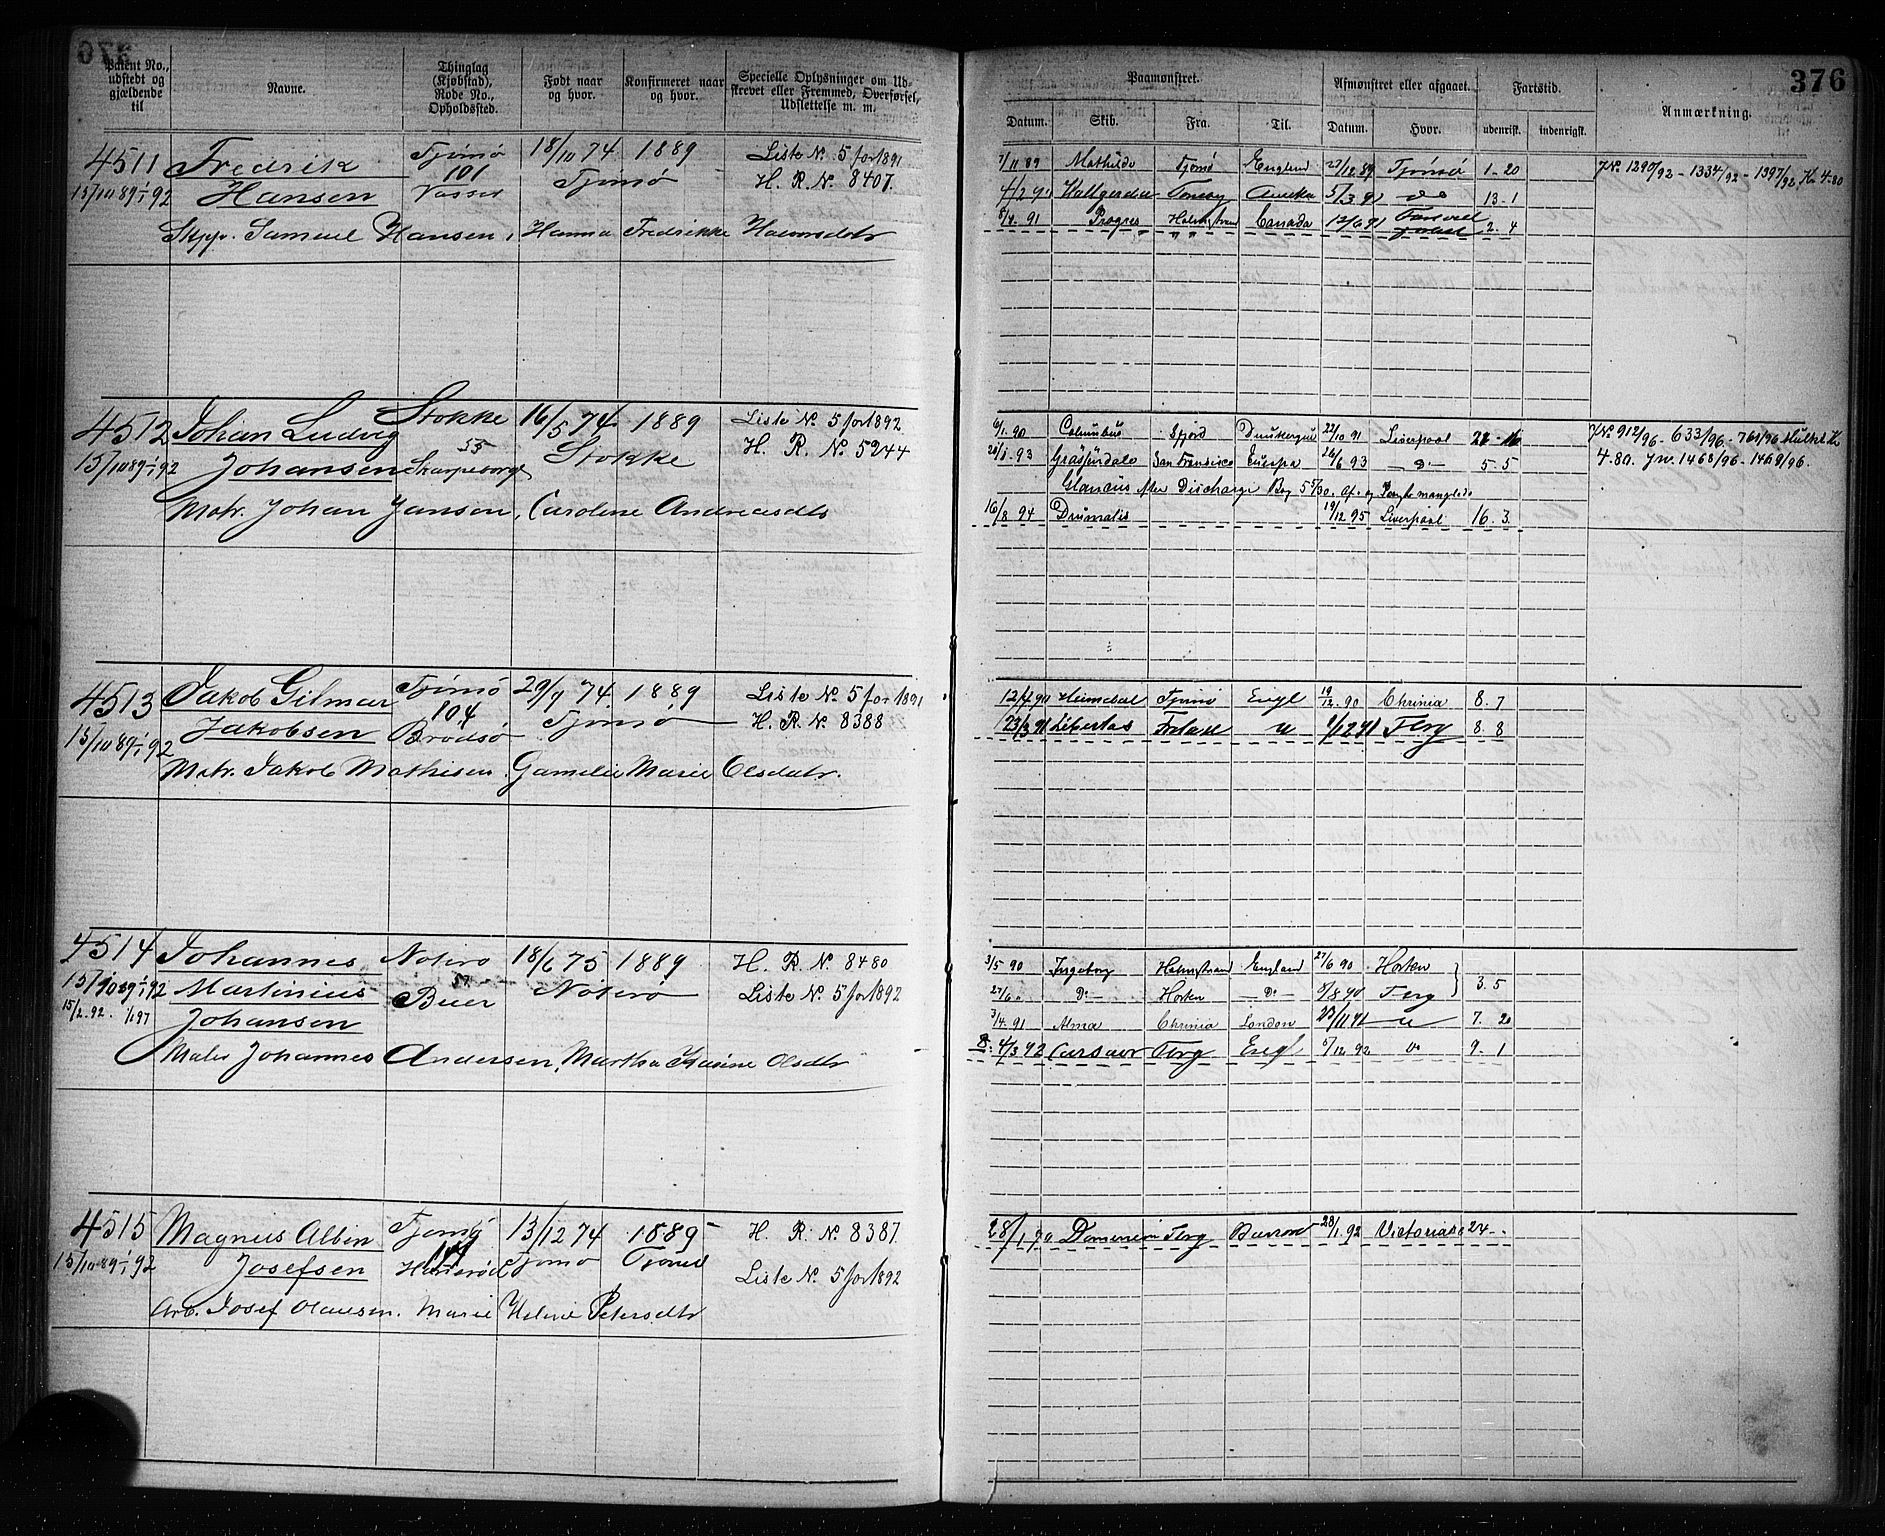 376
Patent No., udstedt og gjældende til
Navne.
Thinglag (Kjøbstad), Rode No., Opholdssted.
Født naar og hvor.
Konfirmeret naar og hvor.
Specielle Oplysninger om Udskrevet eller Fremmed, Overførsel, Udslettelse m. m.
4511 Fredrik Tjømø 18/10 74 1889 Liste No. 5 for 1891
15/10 89 1/1 92 Hansen 101 Vasser Tjømø H. R. No. 8407.
Skpp. Samuel Hansen, Hanna Fredrikke Halvorsdtr
4512 Johan Ludvig Stokke 16/5 74 1889 Liste No. 5 for 1892
15/10 89 1/1 92 Johansen 55 Stokke H. R. No. 5244
Matr. Johan Jansen, Caroline Andreasdtr
4513 Jakob Gilmar Tjømø 29/9 74 1889 Liste No. 5 for 1891
15/10 89 1/1 92 Jakobsen 104 Brødsø Tjømø H. R. No. 8388
Matr. Jakob Mathisen, Gamelie Marie Olsdatr.
4514 Johannes Noterø 18/6 75 1889 H. R. No. 8480
15/10 89 1/1 92 Martinius Buer Noterø Liste No. 5 for 1892
15/2. 92. 1/1 97 Johansen
Johannes Andersen, Martha Karine Olsdtr
4515 Magnus Albin Tjømø 13/12 74 1889 H. R. No. 8387
15/10 89 1/1 92 Josefsen Tjømø Tjømø Liste No. 5 for 1892
Arb. Josef Olausen. Marie Helene Petersdtr
376
Paamønstret.
Afmønstret eller afgaaet.
Fartstid.
Anmærkning.
Datum. Skib. Fra. Til. Datum. Hvor. udenrisk. indenrigsk.
7/11 89 Mathilde Tjømø England 27/12 89 Tjømø 1-20 JNo. 1290/92 - 1334/92 - 1397/92
4/2 90 13-1
8/4. 91 Progres Holmstrand Canada 12/6 91 2. 4
6/1. 90 Columbus 22/10 91 Liverpool
93 San Fransisco Europa 26/6 93 -"- 5. 5
JNo 912/96 - 633/96 - 761/96
4.80. Jn. 1468/96 - 1469/96.
Glancus efter Discharge
16/8 94 Drumalis 19/12 95 Liverpool 16. 3.
12/4 90 Heimdal Tjømø Engl 19/12 90 Chrinia 8. 7
23/3 91 Libertas 9/12 91 Tbrg 8. 8
3/5 90 Ingeborg Holmstrand England 27/6 90 Horten
27/6 " Do Horten Do 8/8 90 Tbrg 3. 5
3/4. 91 Alma Chrinia London 23/11 91 " 7. 20
4/3 92 Tbrg Engl 5/12 92 Do 9. 1
28/1 90 Tbrg 28/1 92 24